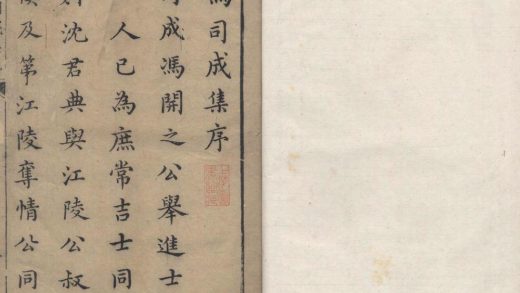 馮司成集序
司成馮開之公舉進士
人已為庶常吉士同
沈君典與江陵公叔
及第江陵奪情公同